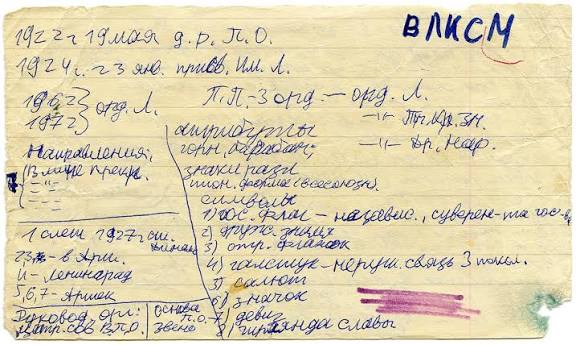 ВЛКСМ
1922 г 19 мая д.р. П.О.
1924 г. 23 янв. присв. им. Л.
1962
1972 } орд. Л.
П.П. - 3 орд. — орд. Л.
—"— Тр.Кр.Зн.
—"— Др. Нар.
Направления:
В мире прекр.
— " —
— " —
1 слет 1927 г.
2,3, - в Арт.
4 - Ленинград
5,6,7 - Артек
Руковод. орг:
Центр. сов В.П.О.
основа
П.О. -
звено
атрибуты
горн, барабан,
знаки разл
пион. форма (всесоюзн).
символы
1) гос. флаг - независ., суверен-та гос-ва
2) друж. знамя
3) отр. флажок
4) галстук - неруш. связь 3 покол.
5) салют
6) значок
7) девиз
8) гирлянда славы